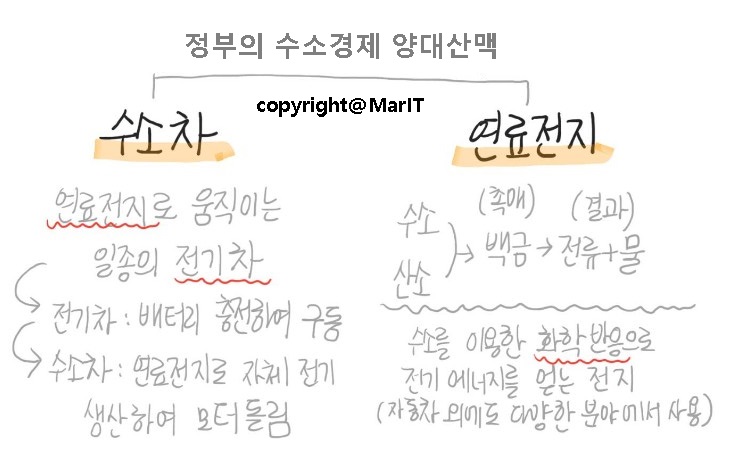 정부의 수소경제 양대산맥
copyright@MarIT
수소차
연료전지로 움직이는
일종의 전기차
전기차 : 배터리 충전하여 구동
수소차 : 연료전지로 자체 전기
생산하여 모터돌림
연료전지
(촉매) (결과)
수소
산소
→ 백금 → 전류+물
수소를 이용한 화학반응으로
전기에너지를 얻는 전지
(자동차 외에도 다양한 분야에서 사용)